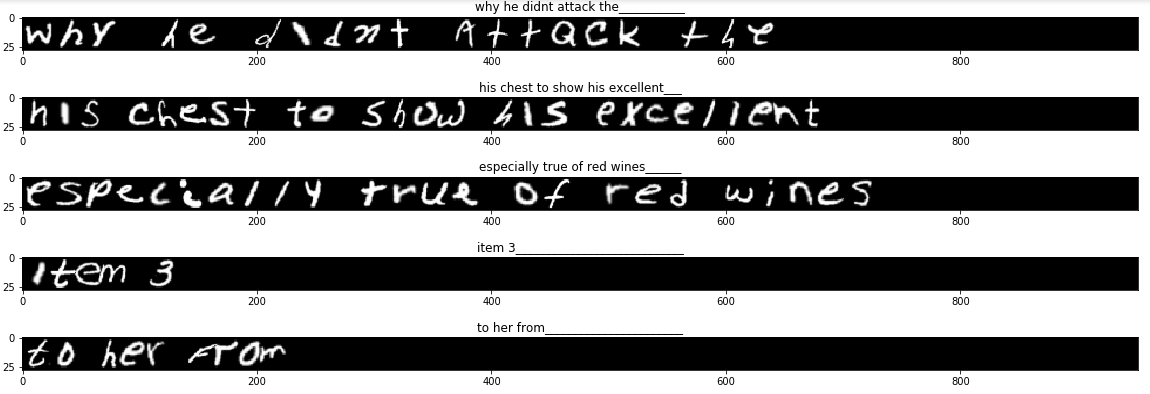 why he didnt attack the___________
0
why he didnt Attack the
25
0 200 400 600 800
his chest to show his excellent___
0
his chest to show his excellent
25
0 200 400 600 800
especially true of red wines______
0
especially true of red wines
25
0 200 400 600 800
item 3____________________________
0
item 3
25
0 200 400 600 800
to her from_______________________
0
to her from
25
0 200 400 600 800